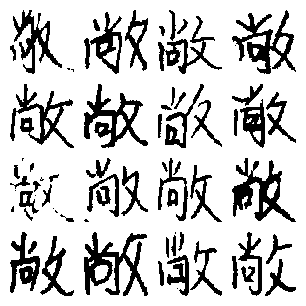 敞敞敞敞
敞敞敞敞
敞敞敞敞
敞敞敞敞